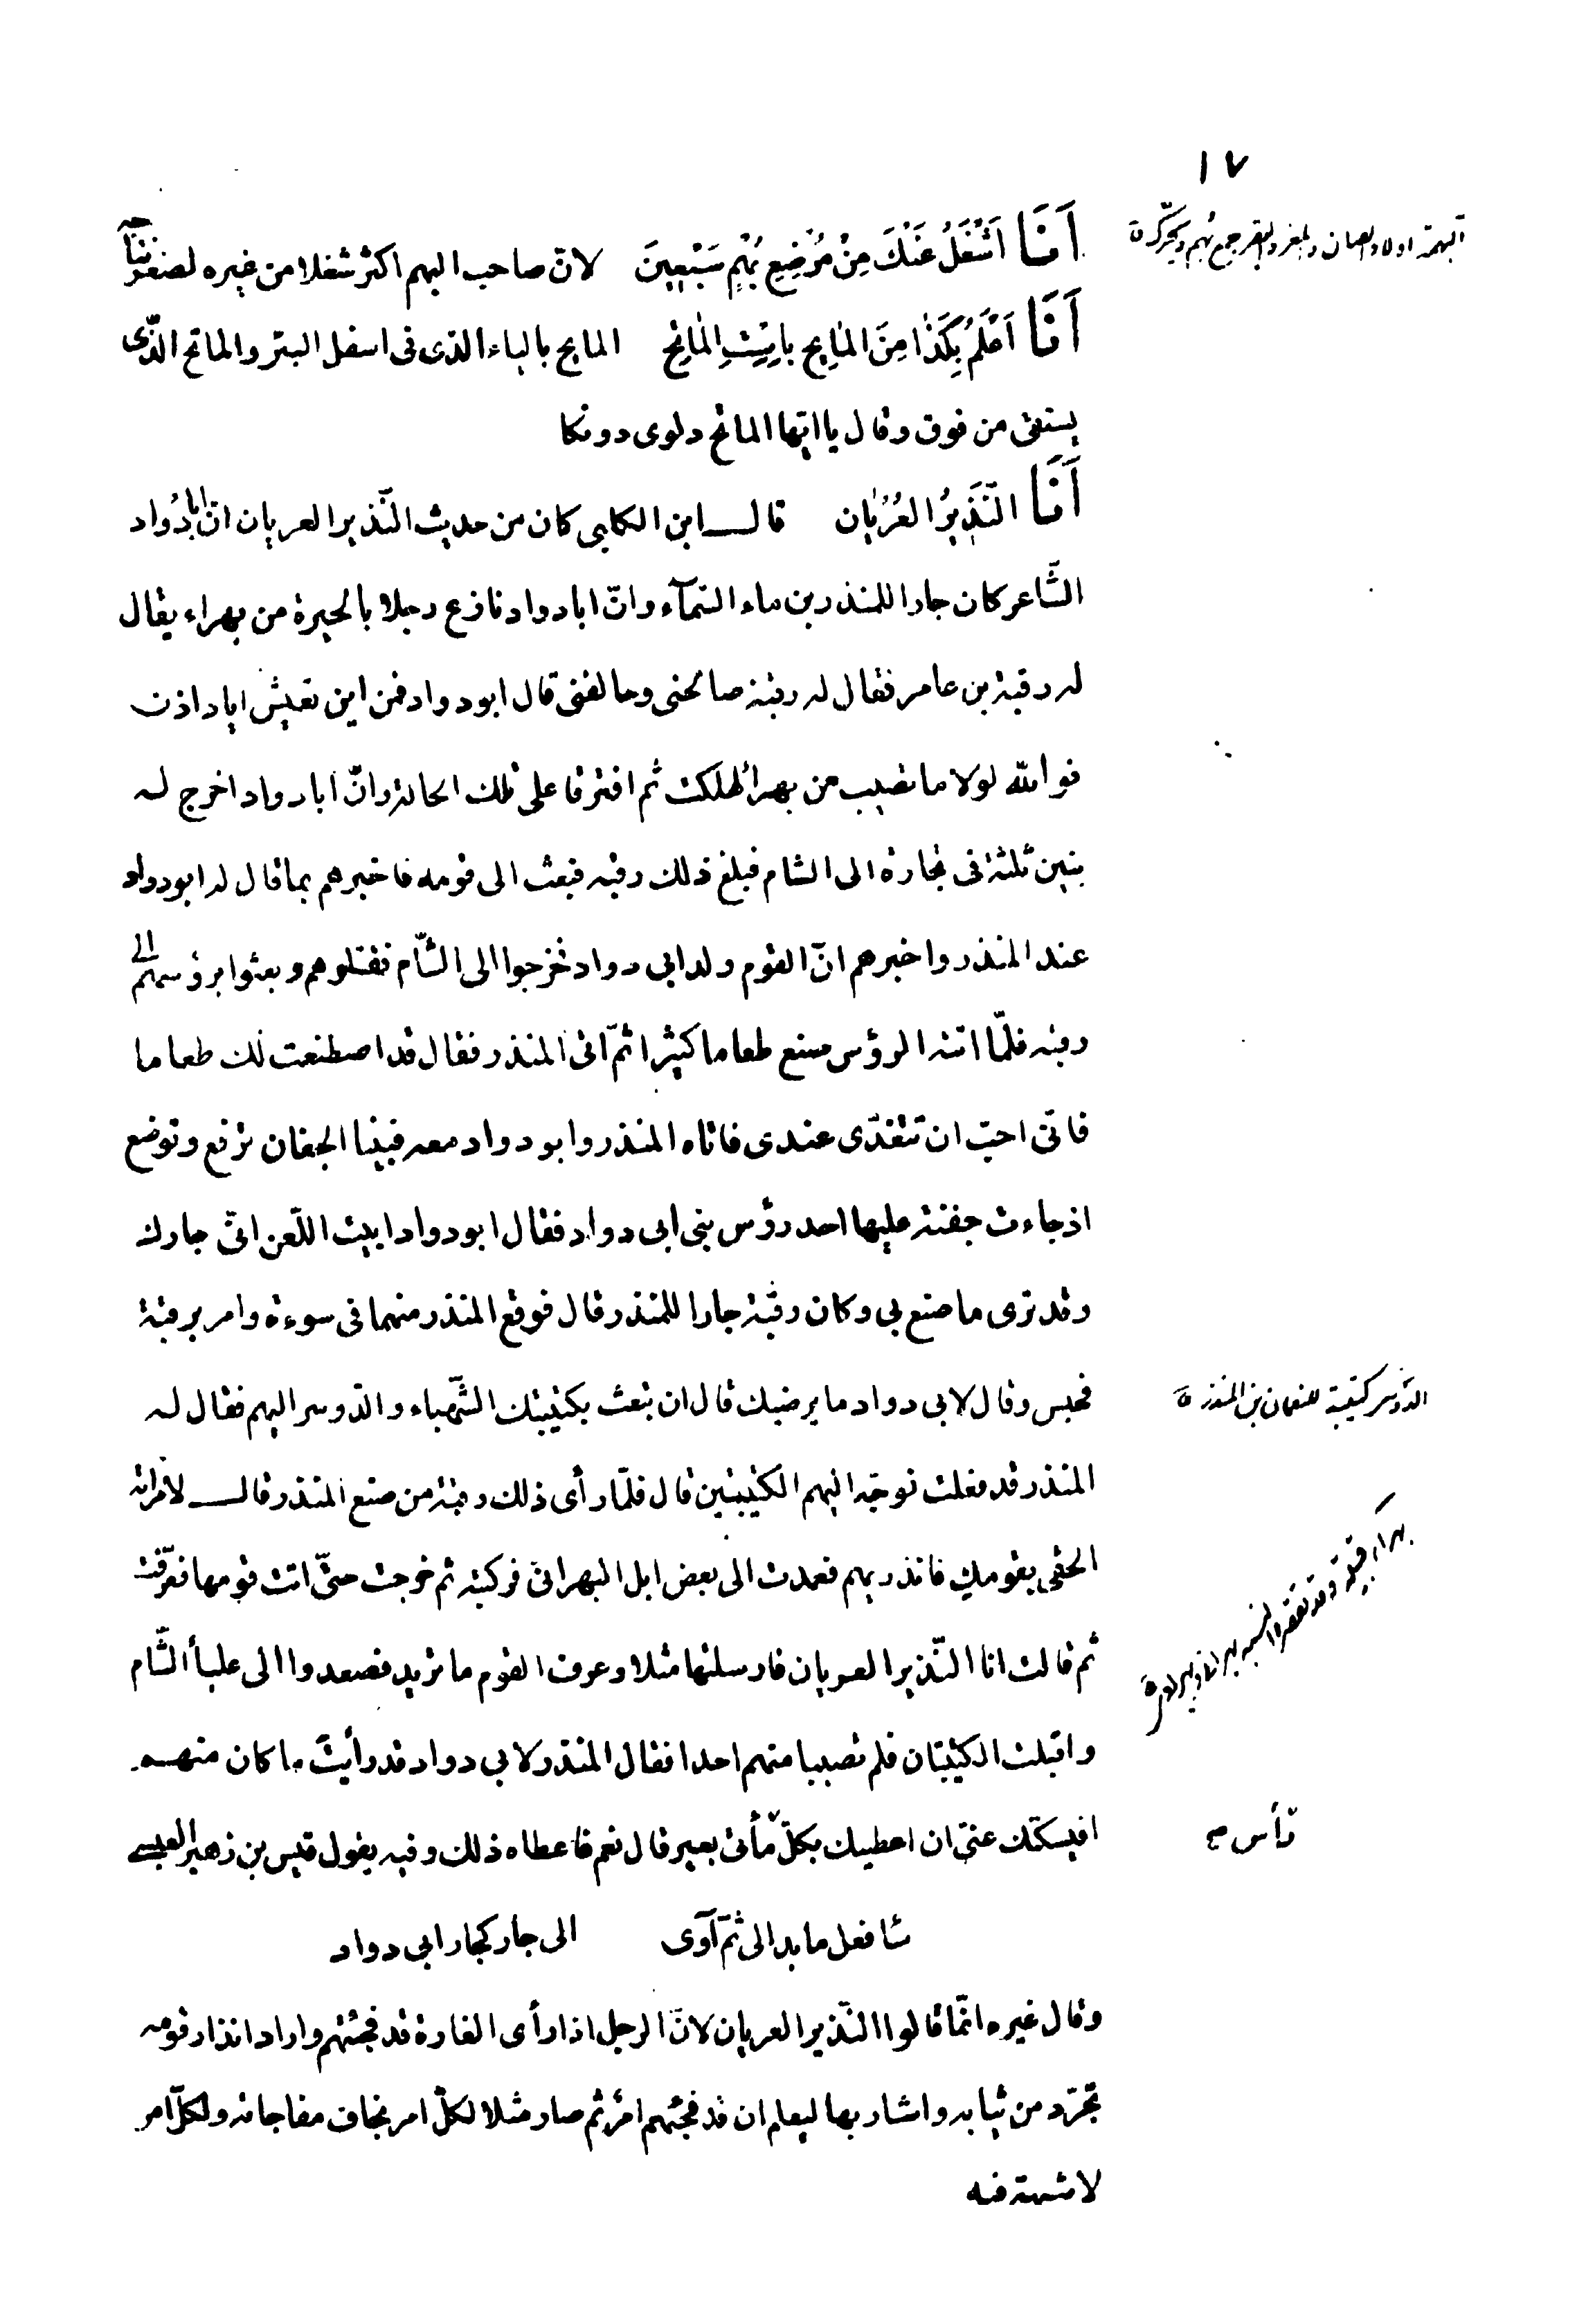 ١٧
اَنَا اَشْغَلُ عَنْكَ مِنْ مُرْضِعِ بُهْمٍ سَبْعِينَ لان صاحب البهم اكثر شغلا من غيره لصغر نتاجه
البهمة اولاد الضان والمعز والبقر جمع بُهم ويحرّك ة
اَنَا اَعْلَمُ بِكَذَا مِنَ المٰايِحِ بِاِسْتِ المٰاتِحِ المايح بالياء الذى فى اسفل البئر والماتح الذّى
يستقى من فوق وقال يا ايّها المائح دلوى دونكا
اَنَا النَّذِيرُ العُرْيٰان قال ابن الكلبى كان من حديث النّذير العريان انّ ابا دُواد
الشّاعر كان جارا للمنذر بن ماء السّمآء وانّ ابا دواد نازع رجلا بالحيرة من بهراء يقال
له رقبة بن عامر فقال له رقبة صالحنى وحالفنى قال ابو دواد فمن اين تعيش اياد اذن
فوالله لولا ما تصيب من بهراء لهلكت ثم افترقا على تلك الحالة وانّ ابا دواد اخرج له
بنين ثلثة فى تجارة الى الشام فبلغ ذلك رقبة فبعث الى قومه فاخبرهم بما قال له ابو دواد
عند المنذر واخبرهم انّ القوم ولد ابى دواد فخرجوا الى الشّام فقتلوهم وبعثوا برؤسهم الى
رقبة فلمّا اتته الرؤس صنع طعاما كثيرا ثمّ اتى المنذر فقال قد اصطنعت لك طعاما
فانّى احبّ ان تتغدّى عندى فاتاه المنذر وابو دواد معه فبينا الجفان ترفع وتوضع
اذ جاءت جفنة عليها احد رؤس بنى ابى دواد فقال ابو دواد ابيت اللّعن انّى جارك
وقد ترى ما صنع بى وكان رقبة جارا للمنذر قال فوقع المنذر منهما فى سوءة وامر برقبة
فحبس وقال لابى دواد ما يرضيك قال ان تبعث بكتيبتك الشّهباء والدّوسر اليهم فقال له
الدّوسر كتيبة للنعمان بن المنذر ة
المنذر قد فعلت فوجّه اليهم الكتيبتين قال فلمّا رأى ذلك رقبة من صنع المنذر قال لامراته
الحقى بقومك فانذريهم فعمدت الى بعض ابل البهرانى فركبته ثم خرجت حتّى اتت قومها فعرّفت
بهراء قبيلة وقد تقصر والنسبة بهرانى وبهراوى ة
ثم قالت انا النّذير العريان فارسلتها مثلا وعرف القوم ما تريد فصعدوا الى علياء الشّام
واقبلت الكتيبتان فلم تصيبا منهم احدا فقال المنذر لابى دواد قد رأيتَ ما كان منهم
افيسكتك عنّى ان اعطيك بكلّ مأتى بعير قال نعم فاعطاه ذلك وفيه يقول قيس بن زهير العبسى
رأس صح
سافعل ما بدا لى ثمّ آوى الى جار كجار ابى دواد
وقال غيره انّما قالوا النّذير العريان لانّ الرجل اذا رأى الغارة قد فجئتهم واراد انذار قومه
تجرّد من ثيابه واشار بها ليعلم ان قد فجئهم امر ثم صار مثلا لكلّ امر يخاف مفاجاته ولكلّ امر
لا شبهة فيه